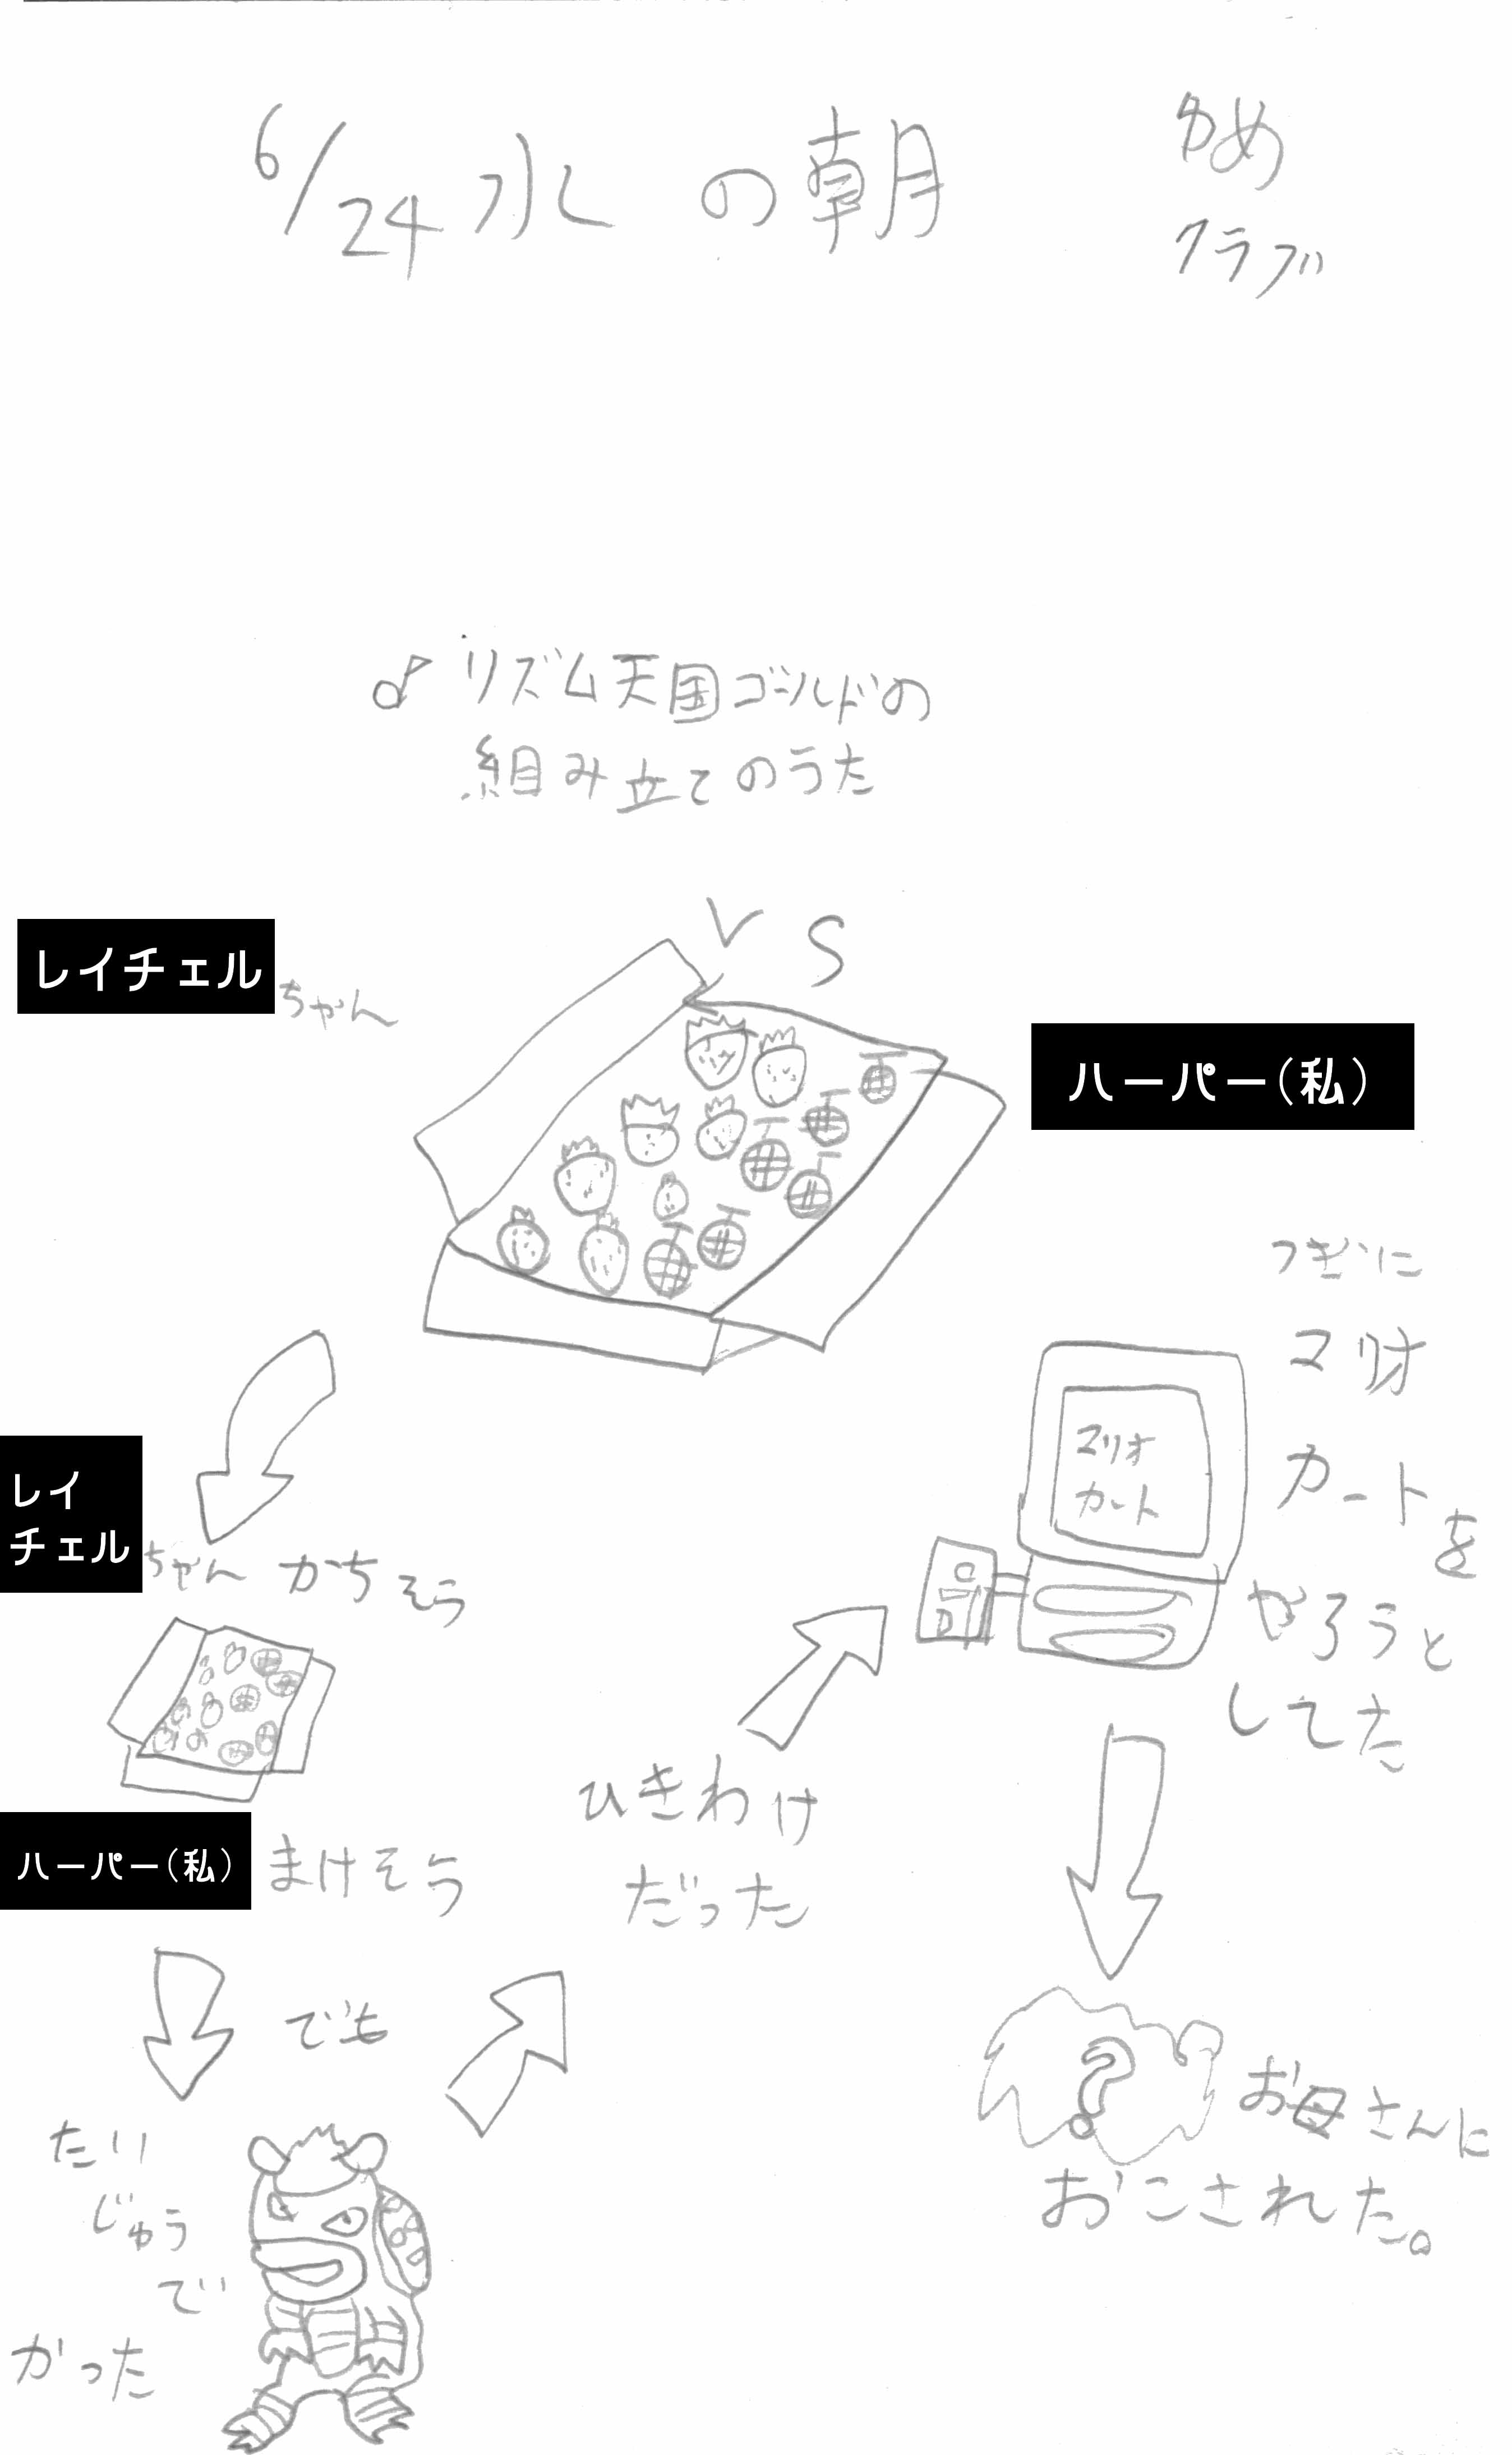 6/24 水 の 朝
ゆめ
クラブ
♪ リズム天国ゴールドの
組み立てのうた
VS
レイチェル ちゃん
ハーパー(私)
レイ
チェル ちゃん かちそう
ハーパー(私) まけそう
でも
たい
じゅう
で
かった
ひきわけ
だった
つぎに
マリオ
カートを
やろうと
してた
マリオ
カート
?
お母さんに
おこされた。